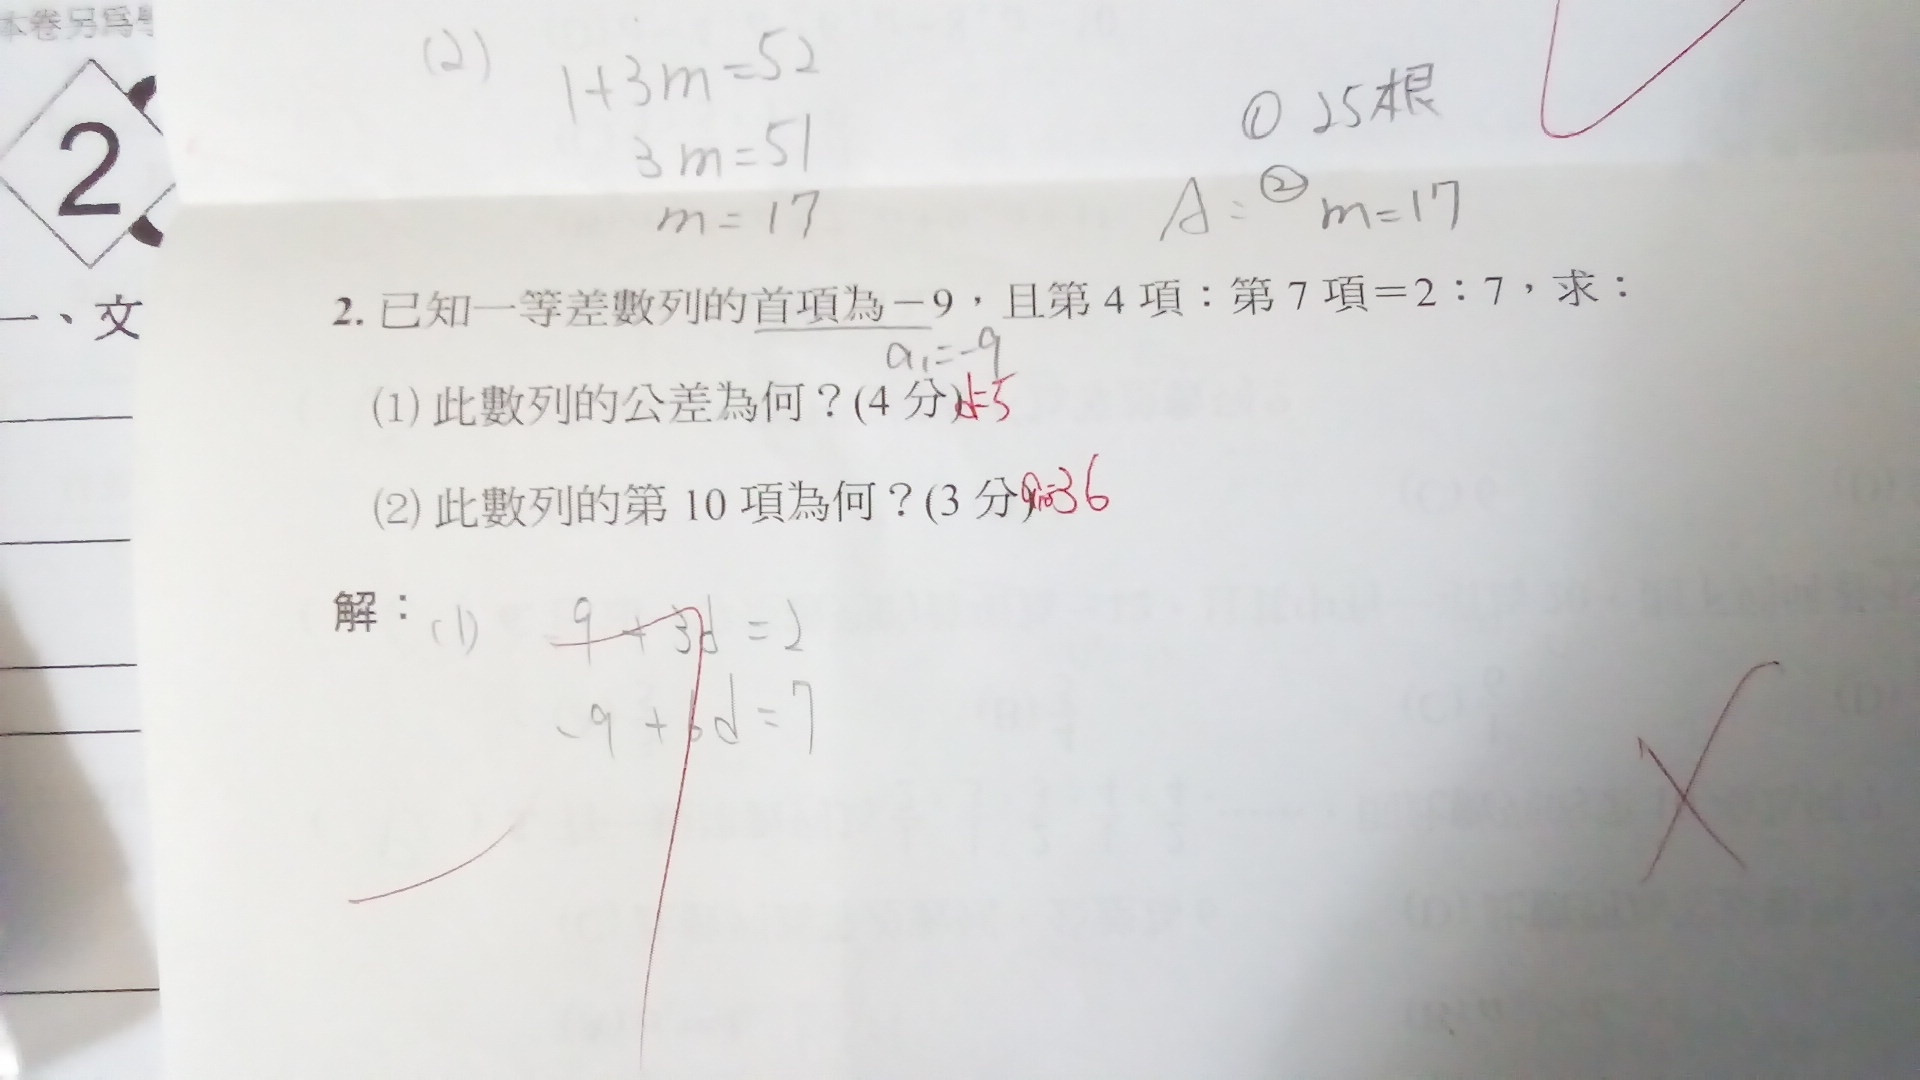 本卷另為學
2
一、文
(2) 1+3m=52
3m=51
m=17
① 25根
A=② m=17
2. 已知一等差數列的首項為－9，且第 4 項：第 7 項＝2：7，求：
a₁=-9
(1) 此數列的公差為何？(4 分) d=5
(2) 此數列的第 10 項為何？(3 分) a₁₀=36
解：(1) -9+3d=2
-9+6d=7